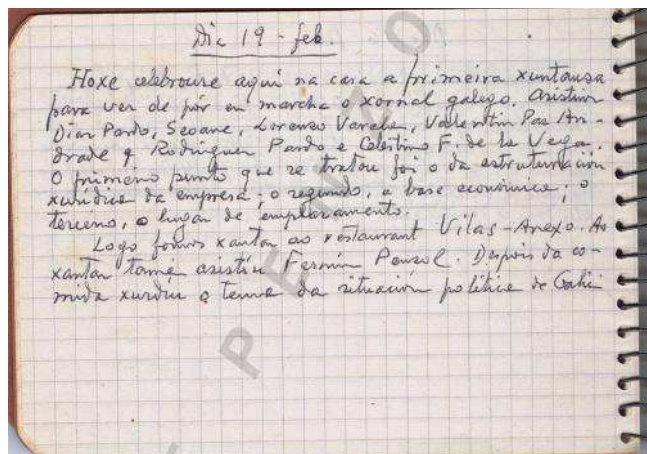 Día 19-feb.
Hoxe celebrouse aquí na casa a primeira xuntansa
para ver de pór en marcha o xornal galego. Asistiron
Díaz Pardo, Seoane, Lorenzo Varela, Valentín Paz An-
drade, Rodríguez Pardo e Celestino F. de la Vega.
O primeiro punto que se tratou foi o da estruturación
xurídica da empresa; o segundo, a base económica; o
terceiro, o lugar de emplazamento.
Logo fomos xantar ao restaurant Vilas-Anexo. Ao
xantar tamén asistiu Fermín Penzol. Depois da co-
mida xurdíu o tema da situación política de Gali
PENZO